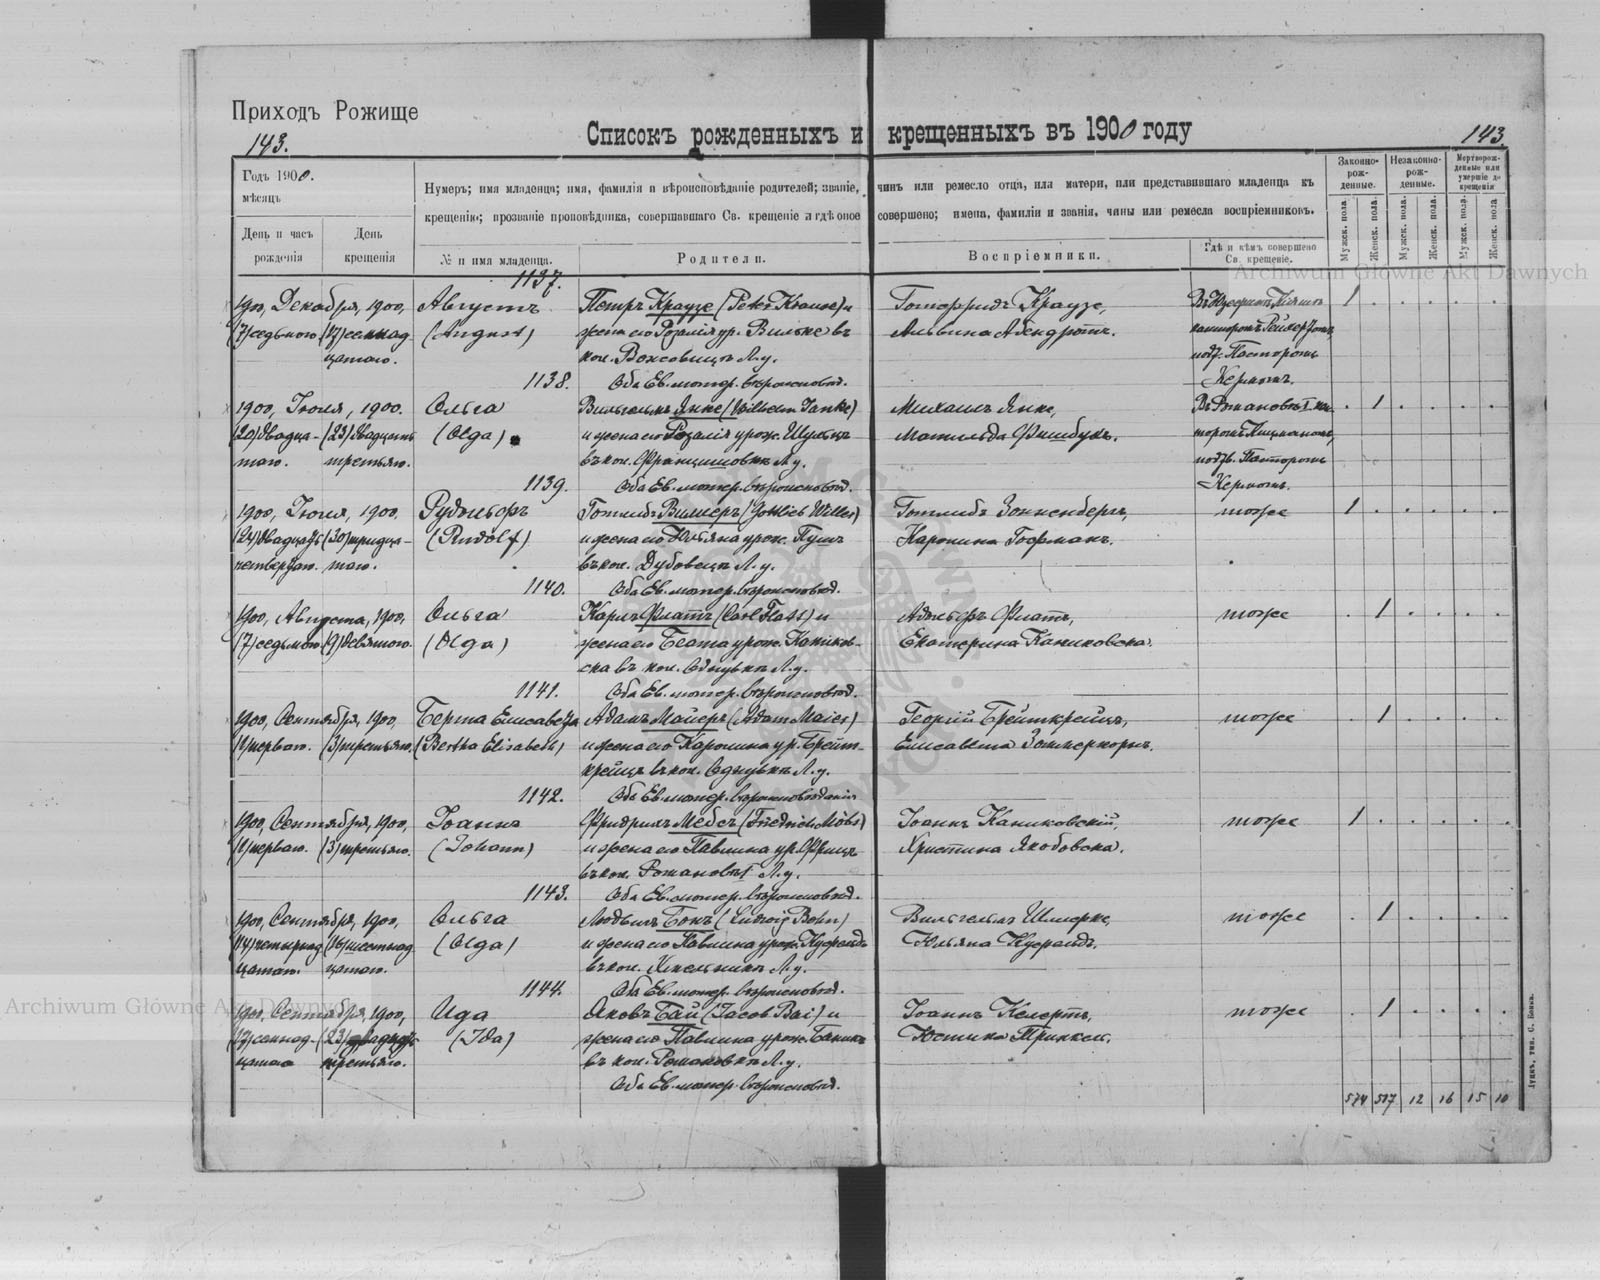 Приходъ Рожище
143.
Списокъ рожденныхъ и крещенныхъ въ 1900 году
143.
Годъ 1900.
мѣсяцъ
Нумеръ; имя младенца; имя, фамилія и вѣроисповѣданіе родителей; званіе, чинъ или ремесло отца, или матери, или представившаго младенца къ
крещенію; прозваніе проповѣдника, совершавшаго Св. крещеніе и гдѣ оное совершено; имена, фамиліи и званія, чины или ремесла воспріемниковъ.
Законно-рож-денные.
Незаконно-рож-денные.
Мертворож-денные или умершіе до крещенія
День и часъ рожденія
День крещенія
№ и имя младенца.
Родители.
Воспріемники.
Гдѣ и кѣмъ совершено Св. крещеніе.
Мужск. пола.
Женск. пола.
Мужск. пола.
Женск. пола.
Мужск. пола.
Женск. пола
Archiwum Główne Akt Dawnych
1137.
1900, Декабря, 1900, Августъ Петръ Краузе (Peter Krause) и Готфридъ Краузе, 1
(7) седьмого (17) семнад (August) жена его Розалія ур. Вильке въ Альвина Абендротъ.
цатаго. кол. Л. у. подтв. Пасторомъ
1138. Оба Ев. лютер. вѣроисповѣд. Кермомъ.
1900, Іюля, 1900. Ольга Вильгельмъ Янке (Wilhelm Janke) Михаилъ Янке, 1
(20) двадца- (23) двадцать (Olga) и жена его Розалія урож. Шульцъ Матильда Фишбукъ.
таго. третьяго. въ кол. Францишовкѣ Л. у. подтв. Пасторомъ
1139. Оба Ев. лютер. вѣроисповѣд. Кермомъ.
1900, Іюля, 1900, Рудольфъ Готлибъ Виллеръ (Gottlieb Willer) Готлибъ Зонненбергъ, тоже 1
(24) двадцать (30) тридца- (Rudolf) и жена его Юльяна урож. Пушъ Каролина Гофманъ.
четвертаго. таго. въ кол. Дубовецъ Л. у.
1140. Оба Ев. лютер. вѣроисповѣд.
1900, Августа, 1900, Ольга Карлъ Флатъ (Carl Flatt) и Адольфъ Флатъ, тоже 1
(7) седьмого (9) девятого. (Olga) жена его Беата урож. Каников- Екатерина Каниковска.
ска въ кол. Л. у.
1141. Оба Ев. лютер. вѣроисповѣд.
1900, Сентября, 1900, Берта Елисавета Адамъ Майеръ (Adam Maier) Георгій Брейткрейцъ, тоже 1
(1) перваго. (3) третьяго. (Bertha Elisabeth) и жена его Каролина ур. Брейт- Елисавета Зоммеркорнъ.
крейцъ въ кол. Л. у.
1142. Оба Ев. лютер. вѣроисповѣданія
1900, Сентября, 1900, Іоаннъ Фридрихъ Мебсъ (Friedrich Möbs) Іоаннъ Каниковскій, тоже 1
(1) перваго. (3) третьяго. (Johann) и жена его Павлина ур. Фрицъ Христина Якобовска.
въ кол. Романовъ I Л. у.
1143. Оба Ев. лютер. вѣроисповѣд.
1900, Сентября, 1900, Ольга Людвигъ Бонъ (Ludwig Bohn) Вильгельмъ Шмерке, тоже 1
(14) четырнад (16) шестнад (Olga) и жена его Павлина урож. Куфельдъ Юльяна Куфельдъ.
цатаго. цатаго. въ кол. Хмельникъ Л. у.
1144. Оба Ев. лютер. вѣроисповѣд.
Archiwum Główne Akt Dawnych
1900, Сентября, 1900, Ида Яковъ Бай (Jacob Bai) и Іоаннъ Келертъ, тоже 1
(17) семнад- (23) двадцать (Ida) жена его Павлина урож. Баникъ Юстина Принкель.
цатаго третьяго. въ кол. Романовкѣ Л. у.
Оба Ев. лютер. вѣроисповѣд.
574 517 12 16 15 10
Луцкъ, тип. С. Бонка.